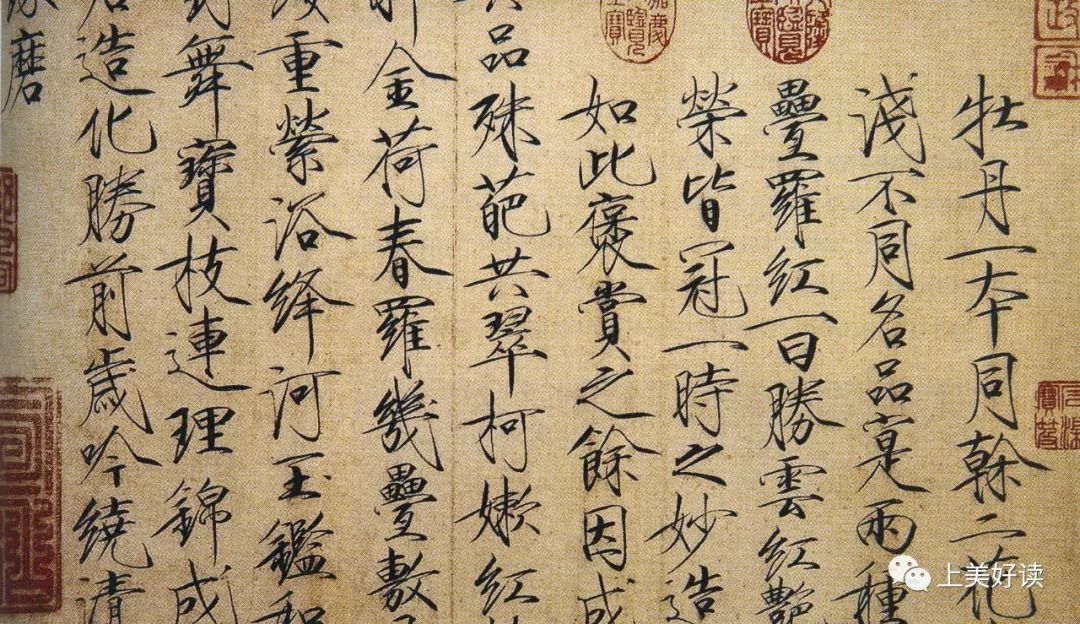 牡丹一本同幹二花
淺不同名品寔兩種
疊羅紅一曰勝雲紅艷
榮皆冠一時之妙造
如此褒賞之餘因成
品殊葩共翠柯嫩紅
金荷春羅幾疊敷
重縈浴絳河玉鑑和
舞寶枝連理錦成
造化勝前歲吟繞清
磨
上美好读